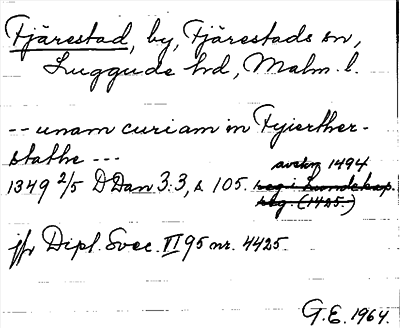 Fjärestad, by, Fjärestads sn,
Luggude hd, Malm. l.
-- unam curiam in Fyierther-
stathe ---
avskr 1494
1349 2/5 DDan 3:3, s 105. reg i Lundekap.
reg. (1425.)
jfr Dipl. Svec. VI 95 nr. 4425.
G.E. 1964.